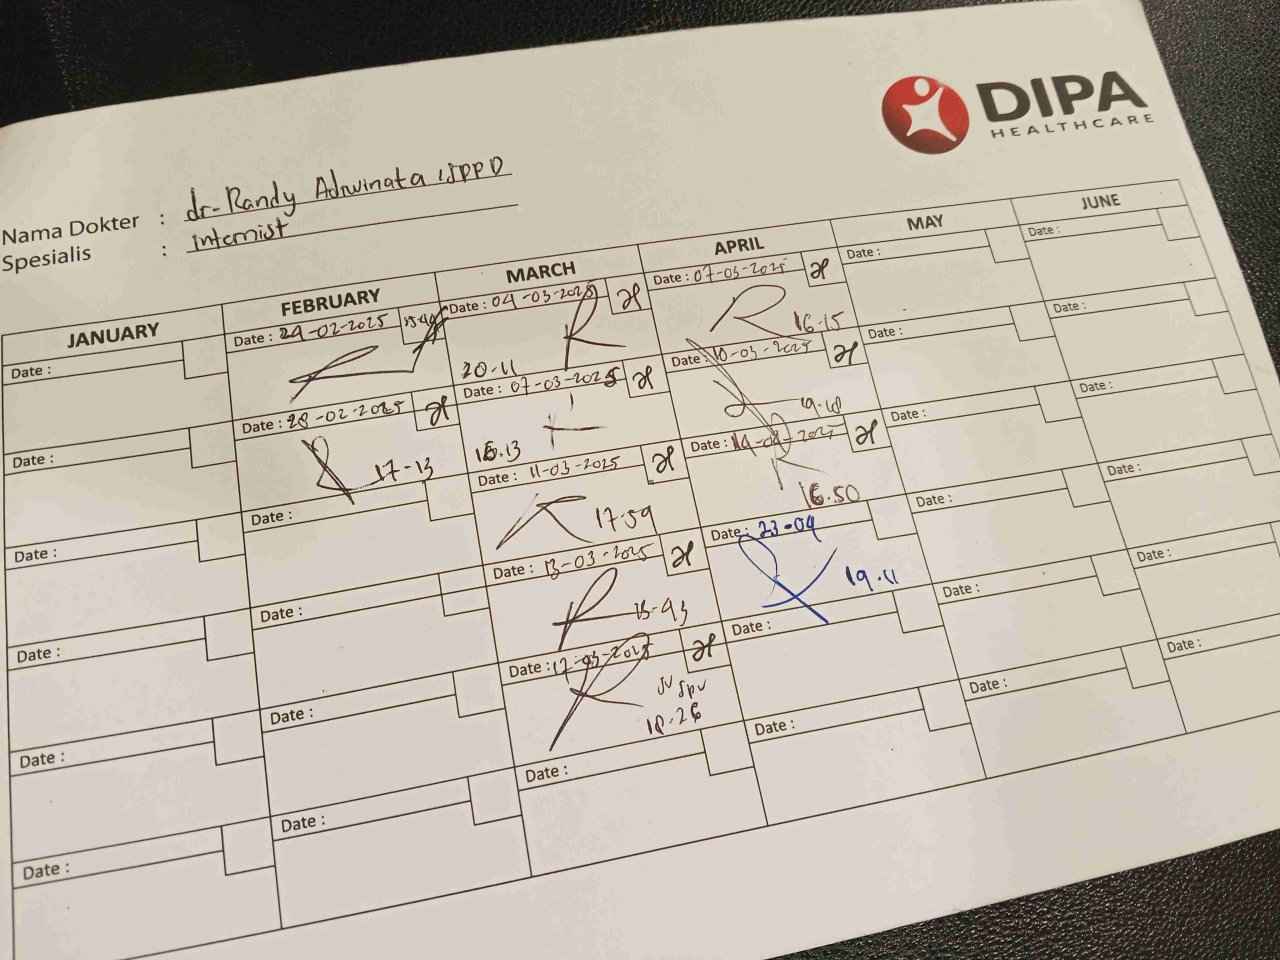 DIPA
HEALTHCARE
Nama Dokter : dr. Randy Adiwinata, SPPD
Spesialis : Internist
JANUARY
Date :
Date :
Date :
Date :
Date :
Date :
FEBRUARY
Date : 24-02-2025
Date : 28-02-2025
17-13
Date :
Date :
Date :
Date :
MARCH
Date : 04-03-2025
20-11
Date : 07-03-2025
16.13
Date : 11-03-2025
17-59
Date : 13-03-2025
Date : 17-03-2025
18-26
Date :
APRIL
Date : 07-03-2025
16-15
Date : 10-03-2025
19-18
Date : 14-03-2025
16.50
Date : 23-04
19.11
Date :
Date :
MAY
Date :
Date :
Date :
Date :
Date :
Date :
JUNE
Date :
Date :
Date :
Date :
Date :
Date :